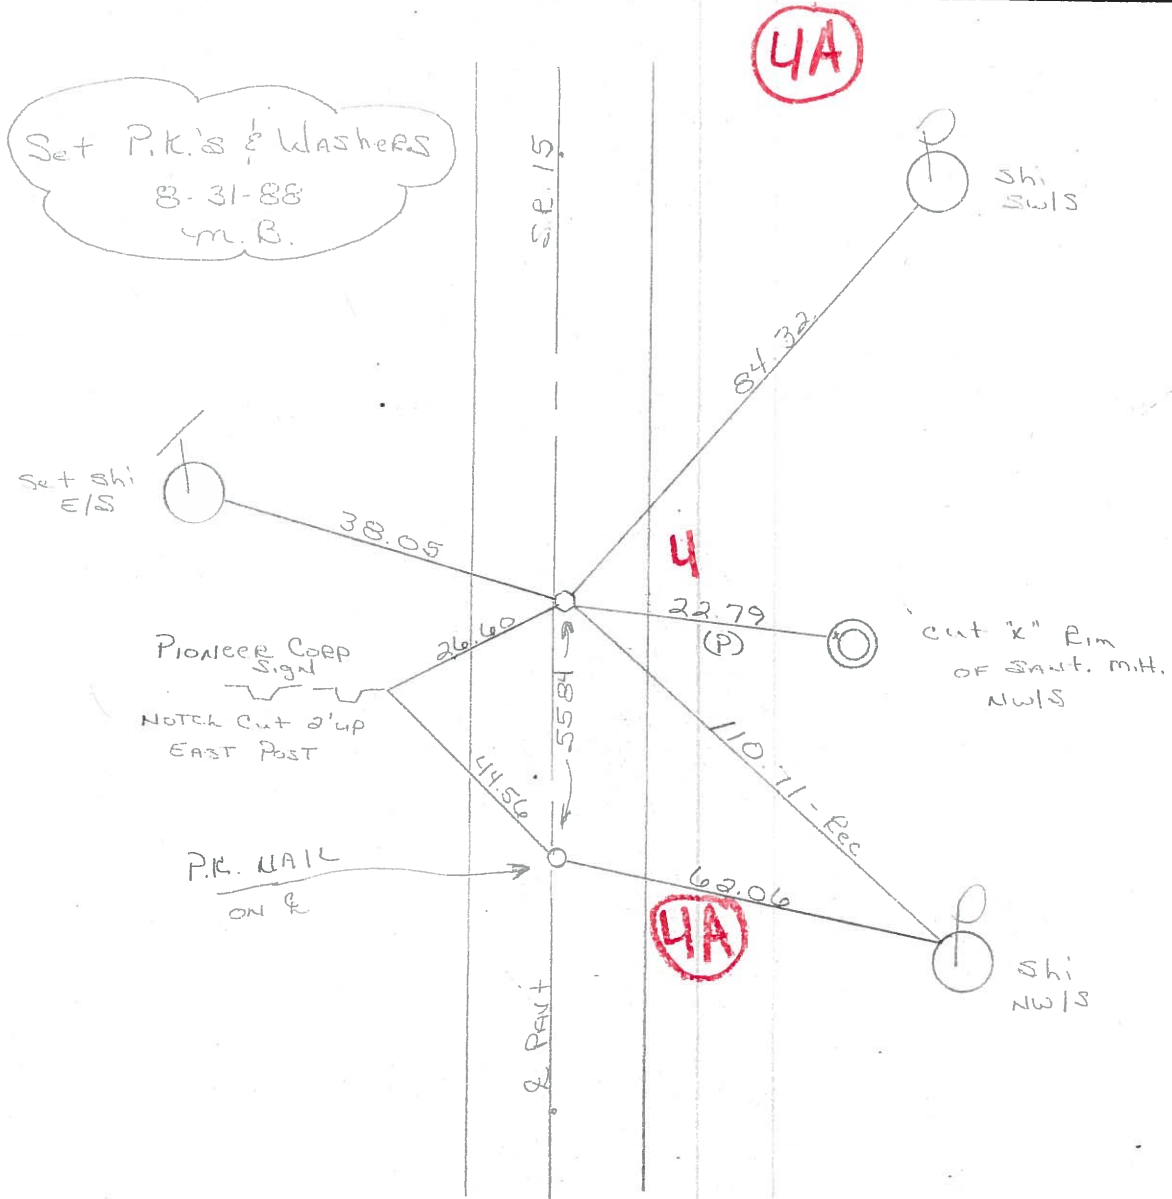 4A
Set P.K.'s & WASHERS
8-31-88
M.B.
S.R. 15
Shi
SW/S
84.32
Set Shi
E/S
38.05
4
22.79
(P)
Cut "X" Rim
OF SANT. M.H.
NW/S
26.60
PIONEER CORP
Sign
NOTCH Cut 2' up
EAST POST
5584
110.71 - Rec
44.56
P.K. NAIL
ON ℄
62.06
4A
Shi
NW/S
℄ PAVT